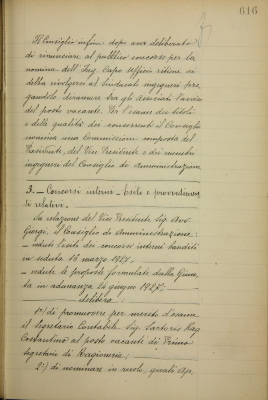 616
Il Consiglio infine dopo aver deliberato
di rinunciare al pubblico concorso per la
nomina dell'Ing. Capo Ufficio ritiene si
debba rivolgersi al Sindacato ingegneri pre-
gandolo diramare tra gli associati l'avviso
del posto vacante. Per l'esame dei titoli
e delle qualità dei concorrenti il Consiglio
nomina una Commissione composta del
Presidente, del Vice Presidente e dei membri
ingegneri del Consiglio di Amministrazione.
3. - Concorsi interni - Esito e provvedimen-
ti relativi. -
Su relazione del Vice Presidente Sig. Avv.
Giorgi, il Consiglio di Amministrazione, :
- veduto l'esito dei concorsi interni banditi
in seduta 16 marzo 1927:
- vedute le proposte formulate dalla Giun-
ta in adunanza 24 giugno 1927:
delibera:
1°) di promuovere per merito d'esame
il Segretario Contabile Sig. Sartoris Rag.
Costantino al posto vacante di Primo
Segretario di Ragioneria;
2°) di nominare in ruolo, quali Ap-